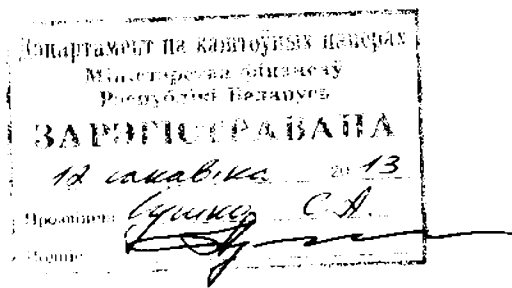 Дэпартамент па каштоўных паперах
Міністэрства фінансаў
Рэспублікі Беларусь
ЗАРЭГІСТРАВАНА
12 20 13
Прозвішча Сушко С.А.
Подпіс